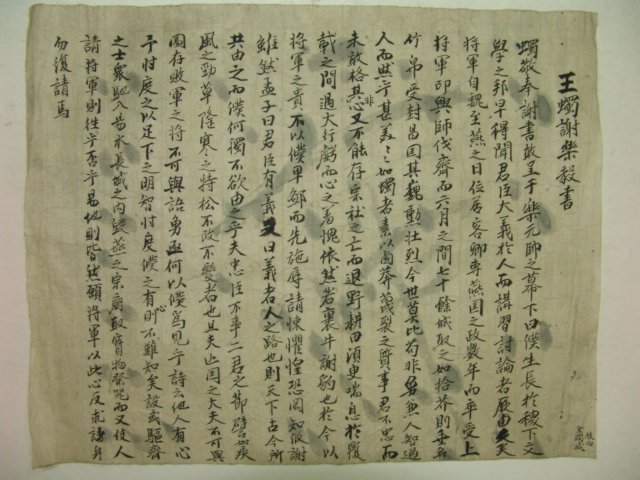 王蠋謝樂毅書
蠋敬奉謝書敢至于樂元帥之幕下曰僕生長於稷下文
學之邦早得聞君臣大義於人而講習討論者厥由久矣
將軍自魏至燕之日位居客卿專燕国之政數年而卒受上
將軍印興師伐齊而六月之間七十餘城取之如拾芥則垂名
竹帛受封昌国其巍勳壮烈今世莫比苟非勇兼人智過
人而然乎甚美〻〻如蠋者素以鹵莽蔑裂之質事君不忠而
未敢格其非心又不能存宗社之亡而退野耕田頃東喘息於覆
載之間過大行戱而心之羞愧依然若裏牛謝豹也於今以
將軍之貴不以僕卑鄙而先施辱請悚懼惶恐罔知假謝
雖然孟子曰君臣有義又曰義者人之路也則天下古今所
共由之而僕何獨不欲由之乎夫忠臣不事二君之節譬如疾
風之勁草隆寒之特松不改不變者也且夫亡国之大夫不可與
圖存敗軍之将不可與語勇亟何以僕爲見乎詩云他人有心
予忖度之以足下之明智忖度僕之有心則不難知矣設或驅齊
之士衆馳入易水長城之内蹀燕之宗廟取寳物祭咒而又伎人
請将軍則往乎否乎易地則皆然願将軍以此心反求諸身
勿復請焉